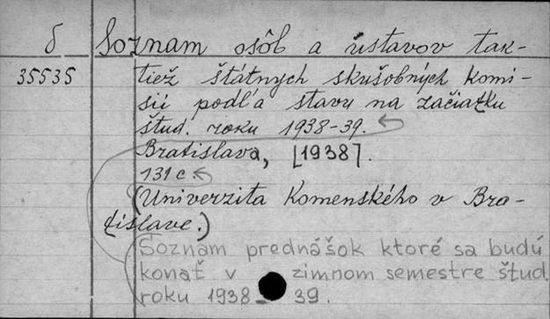 δ Soznam osôb a ústavov tak-
35535 tiež štátnych skušobných komi-
sií podľa stavu na začiatku
štud. roku 1938-39.
Bratislava, [1938].
131 c.
(Univerzita Komenského v Bra-
tislave.)
Soznam prednášok ktoré sa budú
konať v zimnom semestre štud.
roku 1938-39.